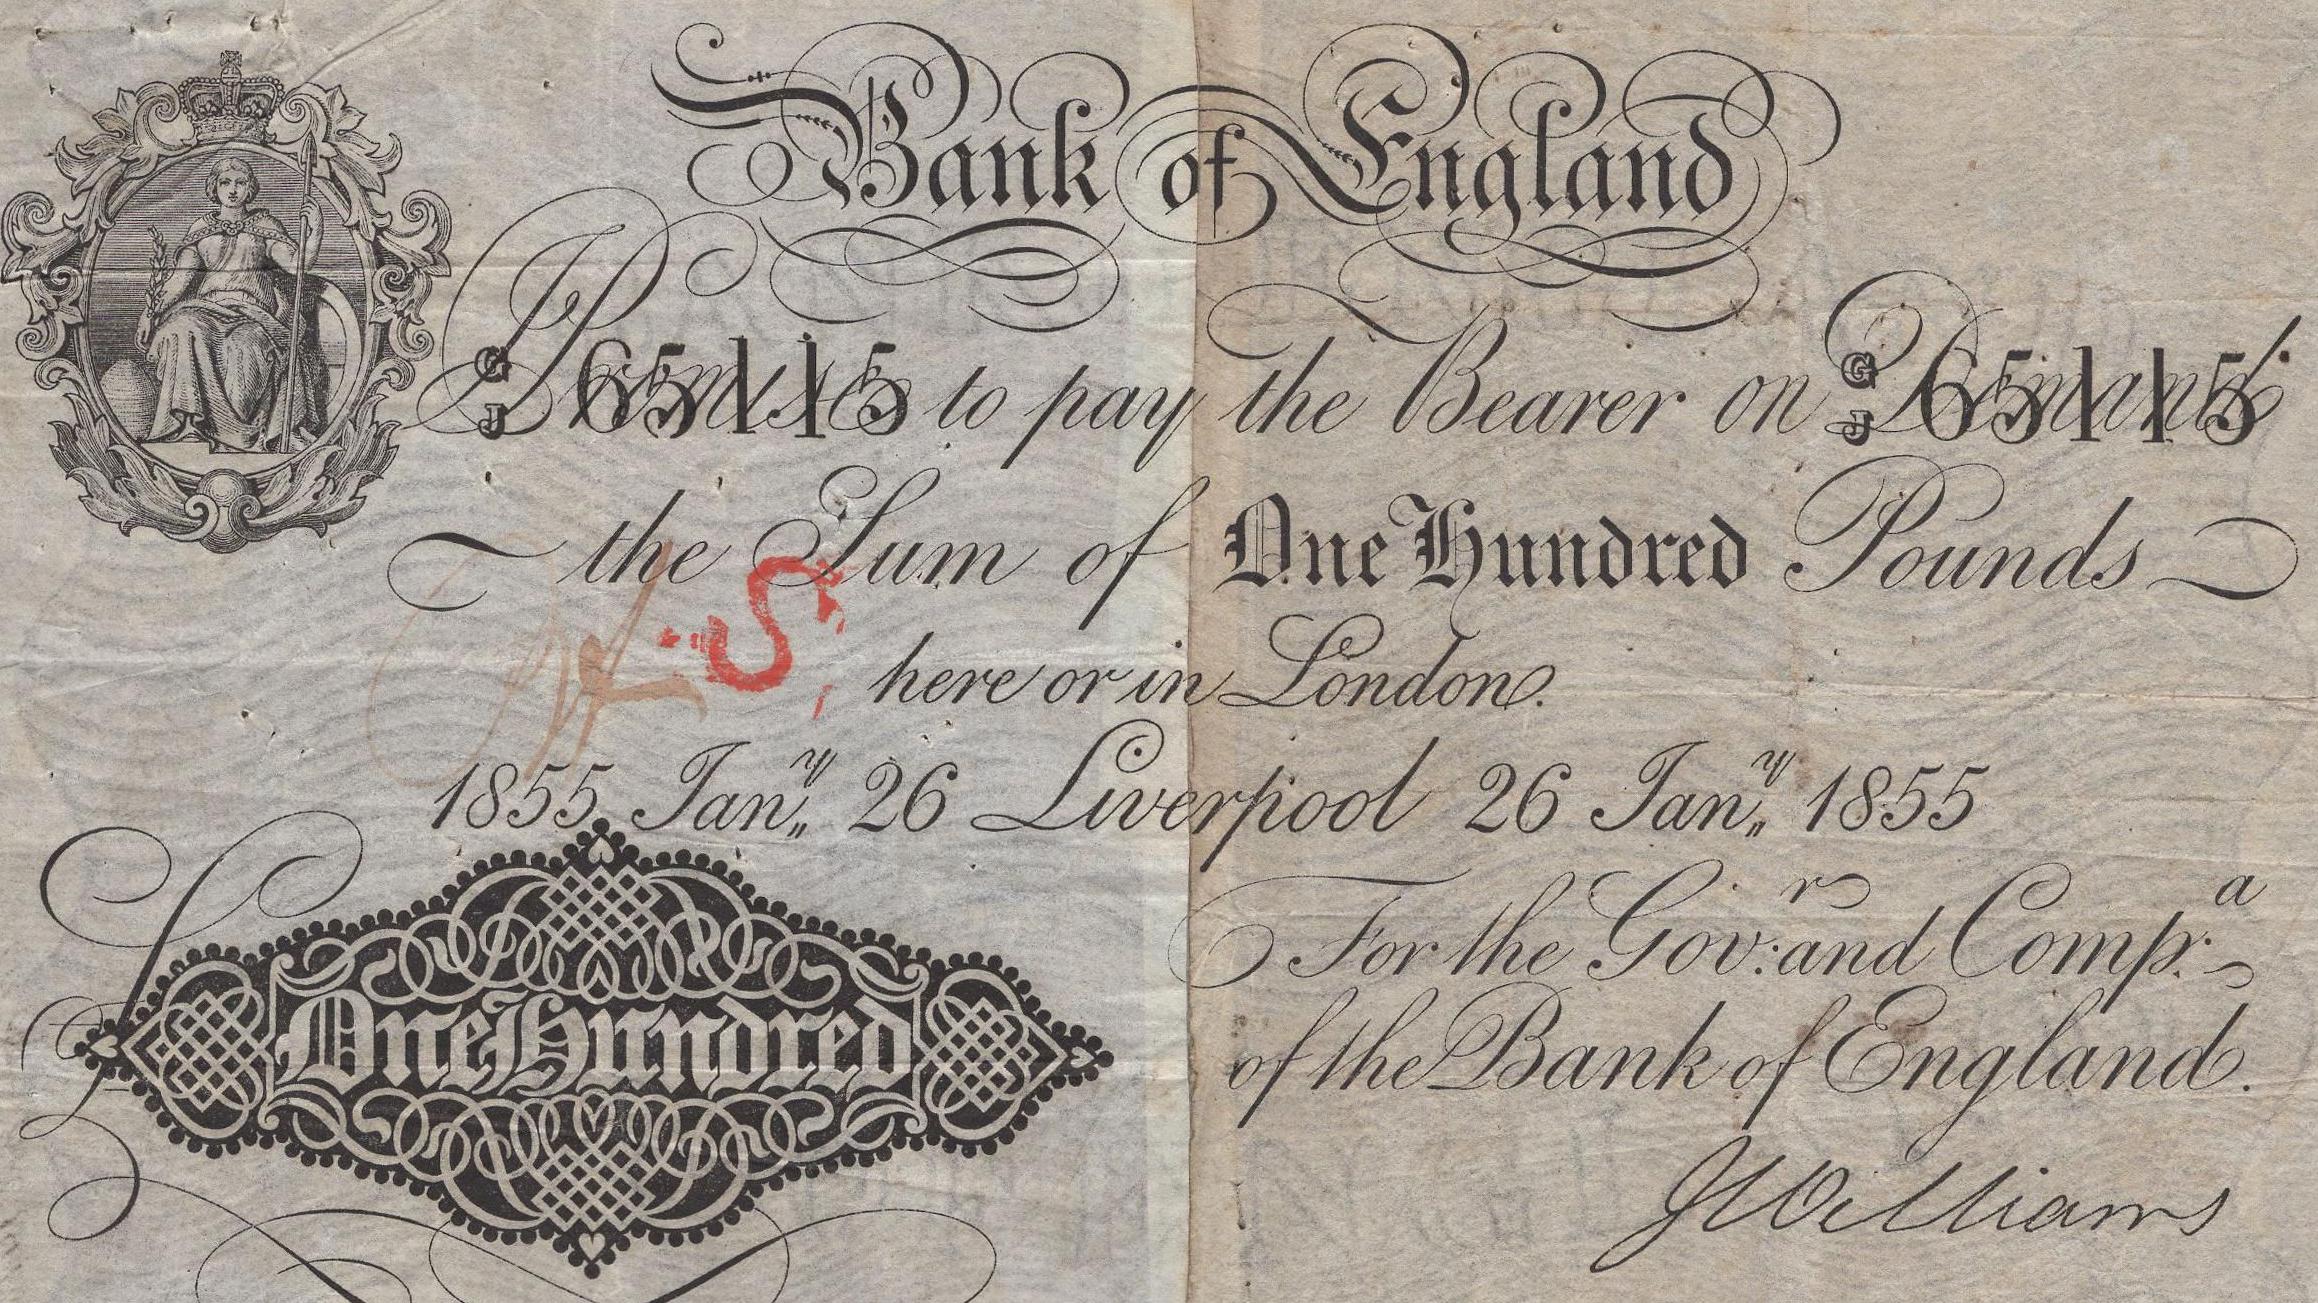 Bank of England
G J 65115 Promise to pay the Bearer on Demand G J 65115
the Sum of One Hundred Pounds
S
here or in London.
1855 Jany 26 Liverpool 26 Jany 1855
For the Govr: and Compa:
£ One Hundred
of the Bank of England.
JWilliams